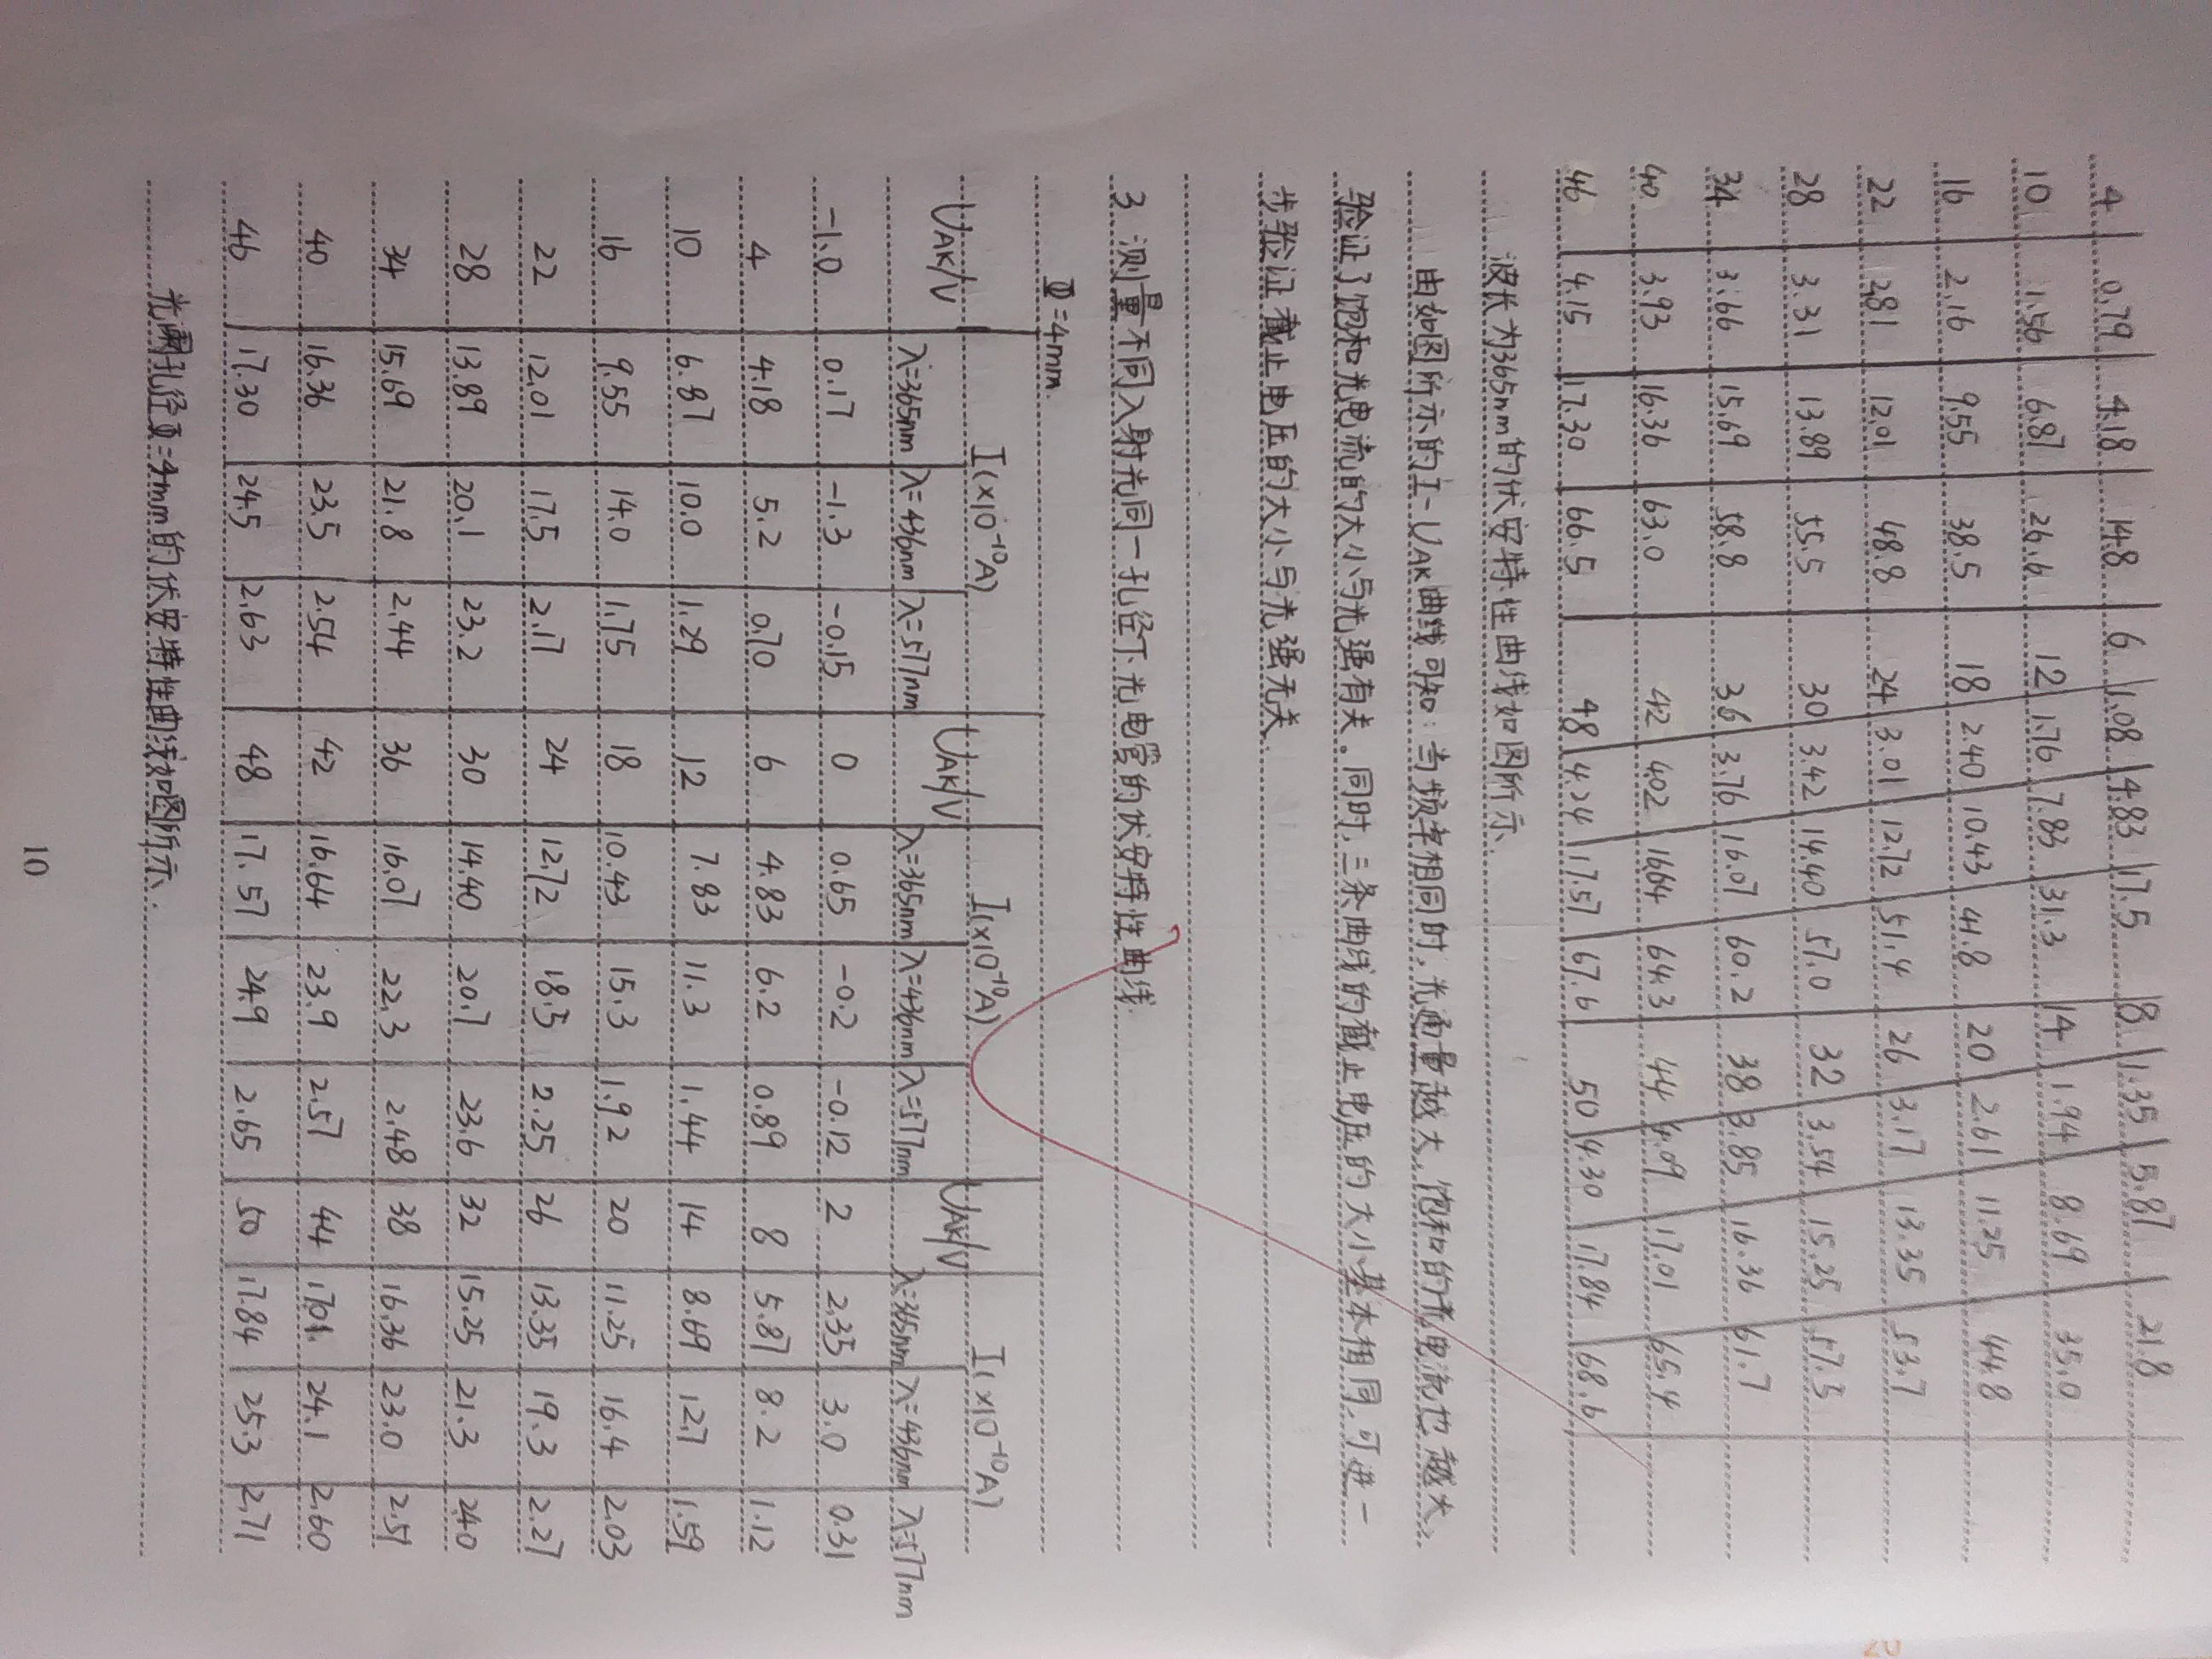 4 0.79 4.18 14.8 6 1.08 4.83 17.5 8 1.35 5.87 21.8
10 1.56 6.87 26.6 12 1.76 7.83 31.3 14 1.94 8.69 35.0
16 2.16 9.55 38.5 18 2.40 10.43 41.8 20 2.61 11.25 44.8
22 2.81 12.01 48.8 24 3.01 12.72 51.4 26 3.17 13.35 53.7
28 3.31 13.89 55.5 30 3.42 14.40 57.0 32 3.54 15.25 57.5
34 3.66 15.69 58.8 36 3.76 16.07 60.2 38 3.85 16.36 61.7
40 3.93 16.36 63.0 42 4.02 16.64 64.3 44 4.09 17.01 65.4
46 4.15 17.30 66.5 48 4.24 17.57 67.6 50 4.30 17.84 68.6
波长为365nm的伏安特性曲线如图所示
由如图所示的I-UAK曲线可知:当频率相同时,光通量越大,饱和的光电流也越大,
验证了饱和光电流的大小与光强有关。同时,三条曲线的截止电压的大小基本相同,可进一
步验证截止电压的大小与光强无关.
3 测量不同入射光同一孔径下光电管的伏安特性曲线.
Φ=4mm
UAK/V I(×10⁻¹⁰A) UAK/V I(×10⁻¹⁰A) UAK/V I(×10⁻¹⁰A)
λ=365nm λ=436nm λ=577nm λ=365nm λ=436nm λ=577nm λ=365nm λ=436nm λ=577nm
-1.0 0.17 -1.3 -0.15 0 0.65 -0.2 -0.12 2 2.35 3.0 0.31
4 4.18 5.2 0.70 6 4.83 6.2 0.89 8 5.87 8.2 1.12
10 6.87 10.0 1.29 12 7.83 11.3 1.44 14 8.69 12.7 1.59
16 9.55 14.0 1.75 18 10.43 15.3 1.92 20 11.25 16.4 2.03
22 12.01 17.5 2.17 24 12.72 18.5 2.25 26 13.35 19.3 2.27
28 13.89 20.1 23.2 30 14.40 20.7 23.6 32 15.25 21.3 24.0
34 15.69 21.8 2.44 36 16.07 22.3 2.48 38 16.36 23.0 2.51
40 16.36 23.5 2.54 42 16.64 23.9 2.57 44 17.01. 24.1 2.60
46 17.30 24.5 2.63 48 17.57 24.9 2.65 50 17.84 25.3 2.71
光阑孔径Φ=4mm的伏安特性曲线如图所示.
10